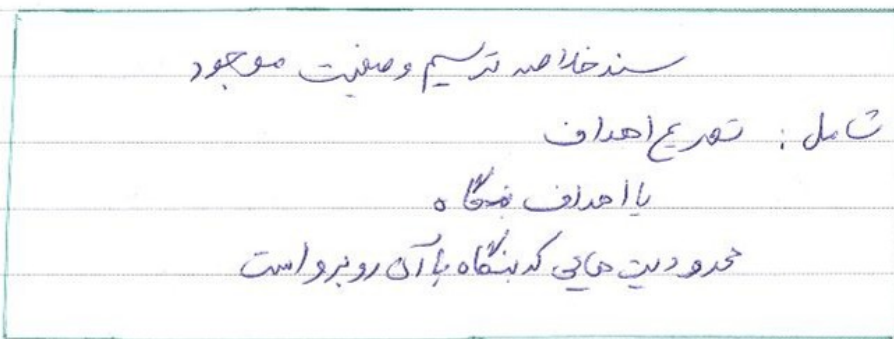 سند خلاصه ترسیم وضعیت موجود
شامل : تصریح اهداف
یا اهداف بنگاه
محدودیت هایی که بنگاه با آن روبرو است